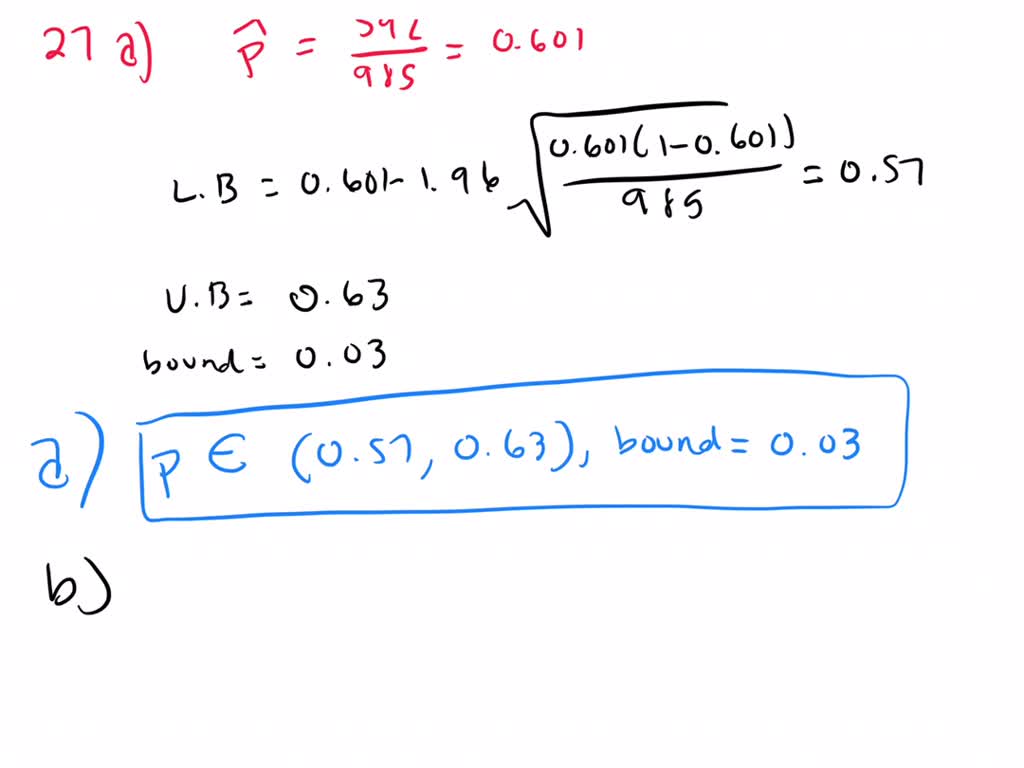 27 a) p̂ = 592/985 = 0.601
L.B = 0.601 - 1.96 √(0.601(1-0.601)/985) = 0.57
U.B = 0.63
bound = 0.03
a) p ∈ (0.57, 0.63), bound = 0.03
b)